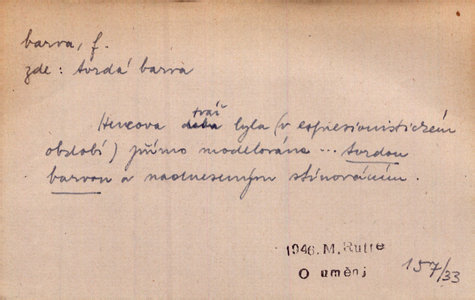 barva, f.
zde: tvrdá barva
tvář
Hencova doba byla (v expresionistickém
období) přímo modelována ... tvrdou
barvou a nadneseným stínováním.
1946. M. Rutte
O uměni
157/33